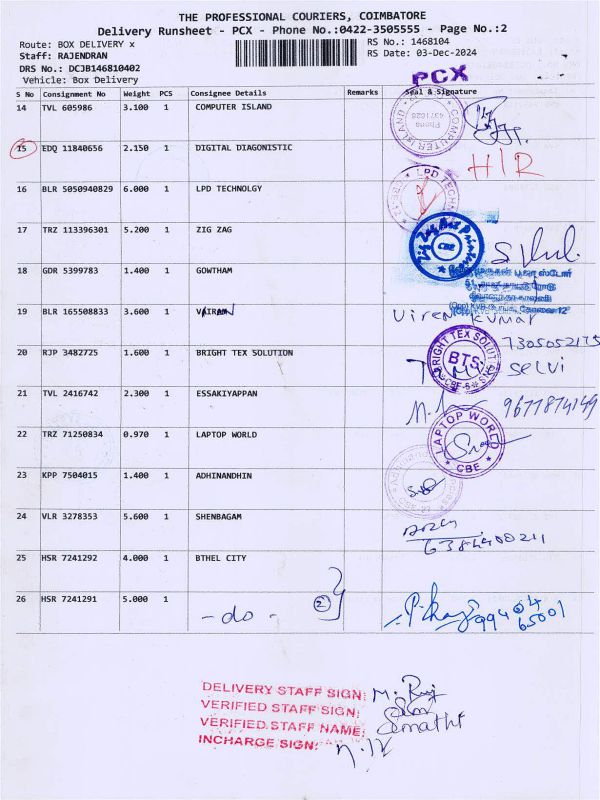 THE PROFESSIONAL COURIERS, COIMBATORE
Delivery Runsheet - PCX - Phone No.:0422-3505555 - Page No.:2
Route: BOX DELIVERY x
RS No.: 1468104
Staff: RAJENDRAN
RS Date: 03-Dec-2024
DRS No.: DCJB146810402
Vehicle: Box Delivery
PCX
S No Consignment No Weight PCS Consignee Details Remarks Seal & Signature
14 TVL 605986 3.100 1 COMPUTER ISLAND
COMPUTER ISLAND Phone 4371626
15 EDQ 11840656 2.150 1 DIGITAL DIAGONISTIC H/R
16 BLR 5050940829 6.000 1 LPD TECHNOLGY
LPD TECH
17 TRZ 113396301 5.200 1 ZIG ZAG
CBE
18 GDR 5399783 1.400 1 GOWTHAM
19 BLR 165508833 3.600 1 VAIRAM Viren Kumar
7305052175
20 RJP 3482725 1.600 1 BRIGHT TEX SOLUTION
BRIGHT TEX SOLUTION BTS CBE-6
Selvi
21 TVL 2416742 2.300 1 ESSAKIYAPPAN 9677874149
22 TRZ 71250834 0.970 1 LAPTOP WORLD
LAPTOP WORLD CBE
23 KPP 7504015 1.400 1 ADHINANDHIN
24 VLR 3278353 5.600 1 SHENBAGAM
6384400211
25 HSR 7241292 4.000 1 BTHEL CITY
26 HSR 7241291 5.000 1 - do - 2
99404
65001
DELIVERY STAFF SIGN: M. Raj
VERIFIED STAFF SIGN:
VERIFIED.STAFF NAME: Sumathi
INCHARGE SIGN: